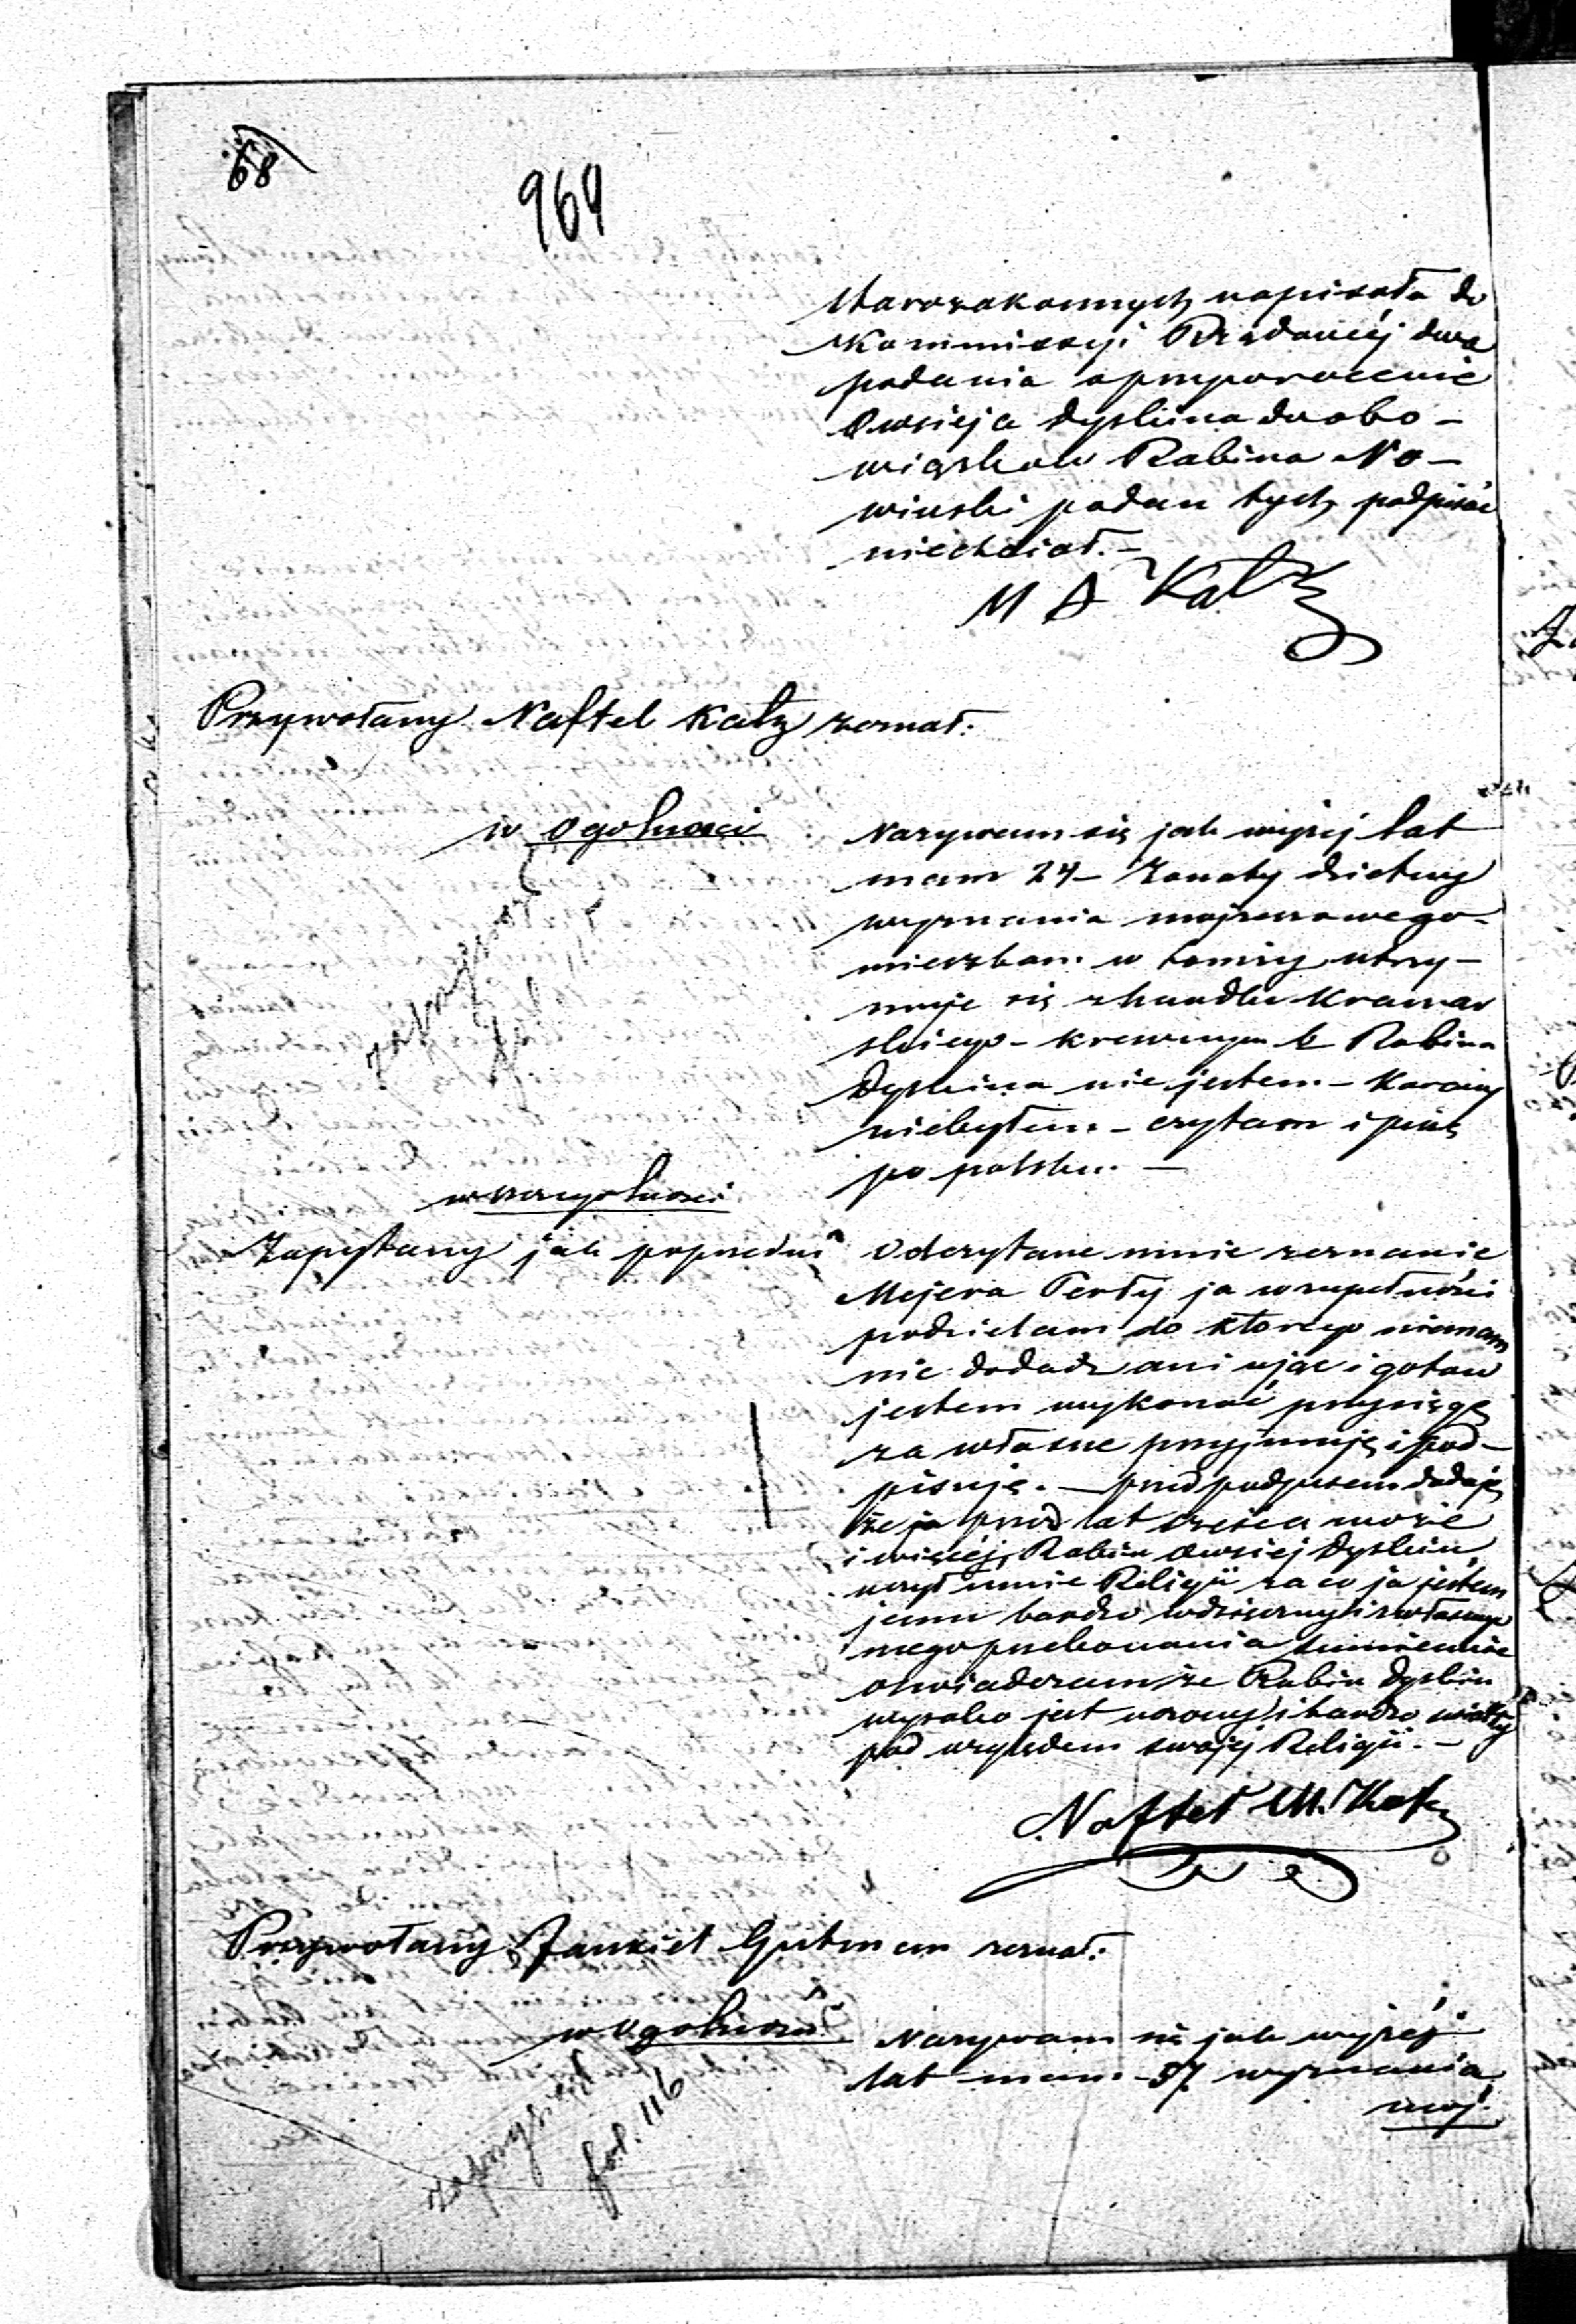 68
964
starozakonnych napisała do
Kommissyi Rządowéj dwa
podania o przywrocenie
Owsieja Dyskina do obo-
wiązkow Rabina No-
winski podan tych podpisać
niechciał.-
M A Katz
Przywołany Naftel Katz zeznał:
w ogolnosci
Nazywam się jak wyżej lat
mam 24- Żonaty dzietny
wyznania mojżeszowego-
mieszkam w Łomży utrzy-
muje się z handlu kramar
skiego- krewnym Rabina
Dyskina nie jestem- Karany
niebyłem- czytam i piszę
po polsku.-
zaprzysiężony
w szczegolnosci
Zapytany jak poprzedni
Odczytane mnie zeznanie
Mejera Perły ja w zupełności
podzielam do ktorego niemam
nic dodadz ani ująć i gotow
jestem wykonać przysięgę
za własne przyjmuję i pod-
pisuję.- przed podpisem dodaję
że ja przed lat sześcia może
i więcéj, Rabin Owsiej Dyskin
uczył mnie Religii za co ja jestem
jemu bardzo wdzięczny i z własnego
mego przekonania sumiennie
oświadczam że Rabin Dyskin
wysoko jest uczony i bardzo
pod względem swojéj Religii.-
Naftel M. Katz
Przywołany Jankiel Gutman zeznał:
w ogolnosci
Nazywam się jak wyżéj
lat mam -57. wyznania
moj.
zaprzysiężony
fol. 116